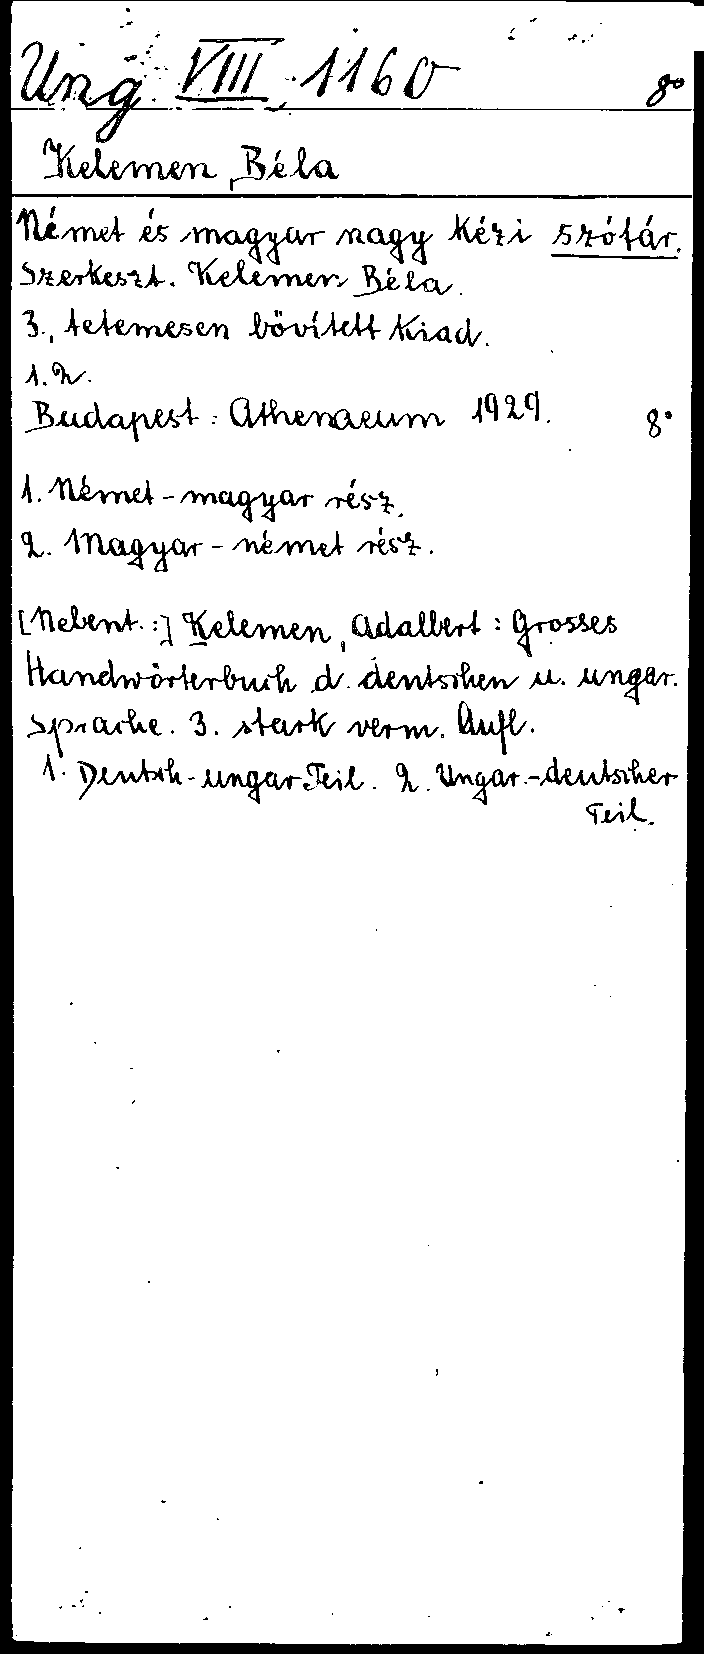 Ung VIII 1160 8°
Kelemen, Béla
Német és magyar nagy kézi szótár.
Szerkeszt. Kelemen Béla.
3., tetemesen bővített kiad.
1.2.
Budapest: Athenaeum 1929. 8°
1. Német-magyar rész.
2. Magyar-német rész.
[Nebent.:] Kelemen, Adalbert: Grosses
Handwörterbuch d. deutschen u. ungar.
Sprache. 3. stark verm. Aufl.
1. Deutsch-ungar. Teil. 2. Ungar.-deutscher
Teil.